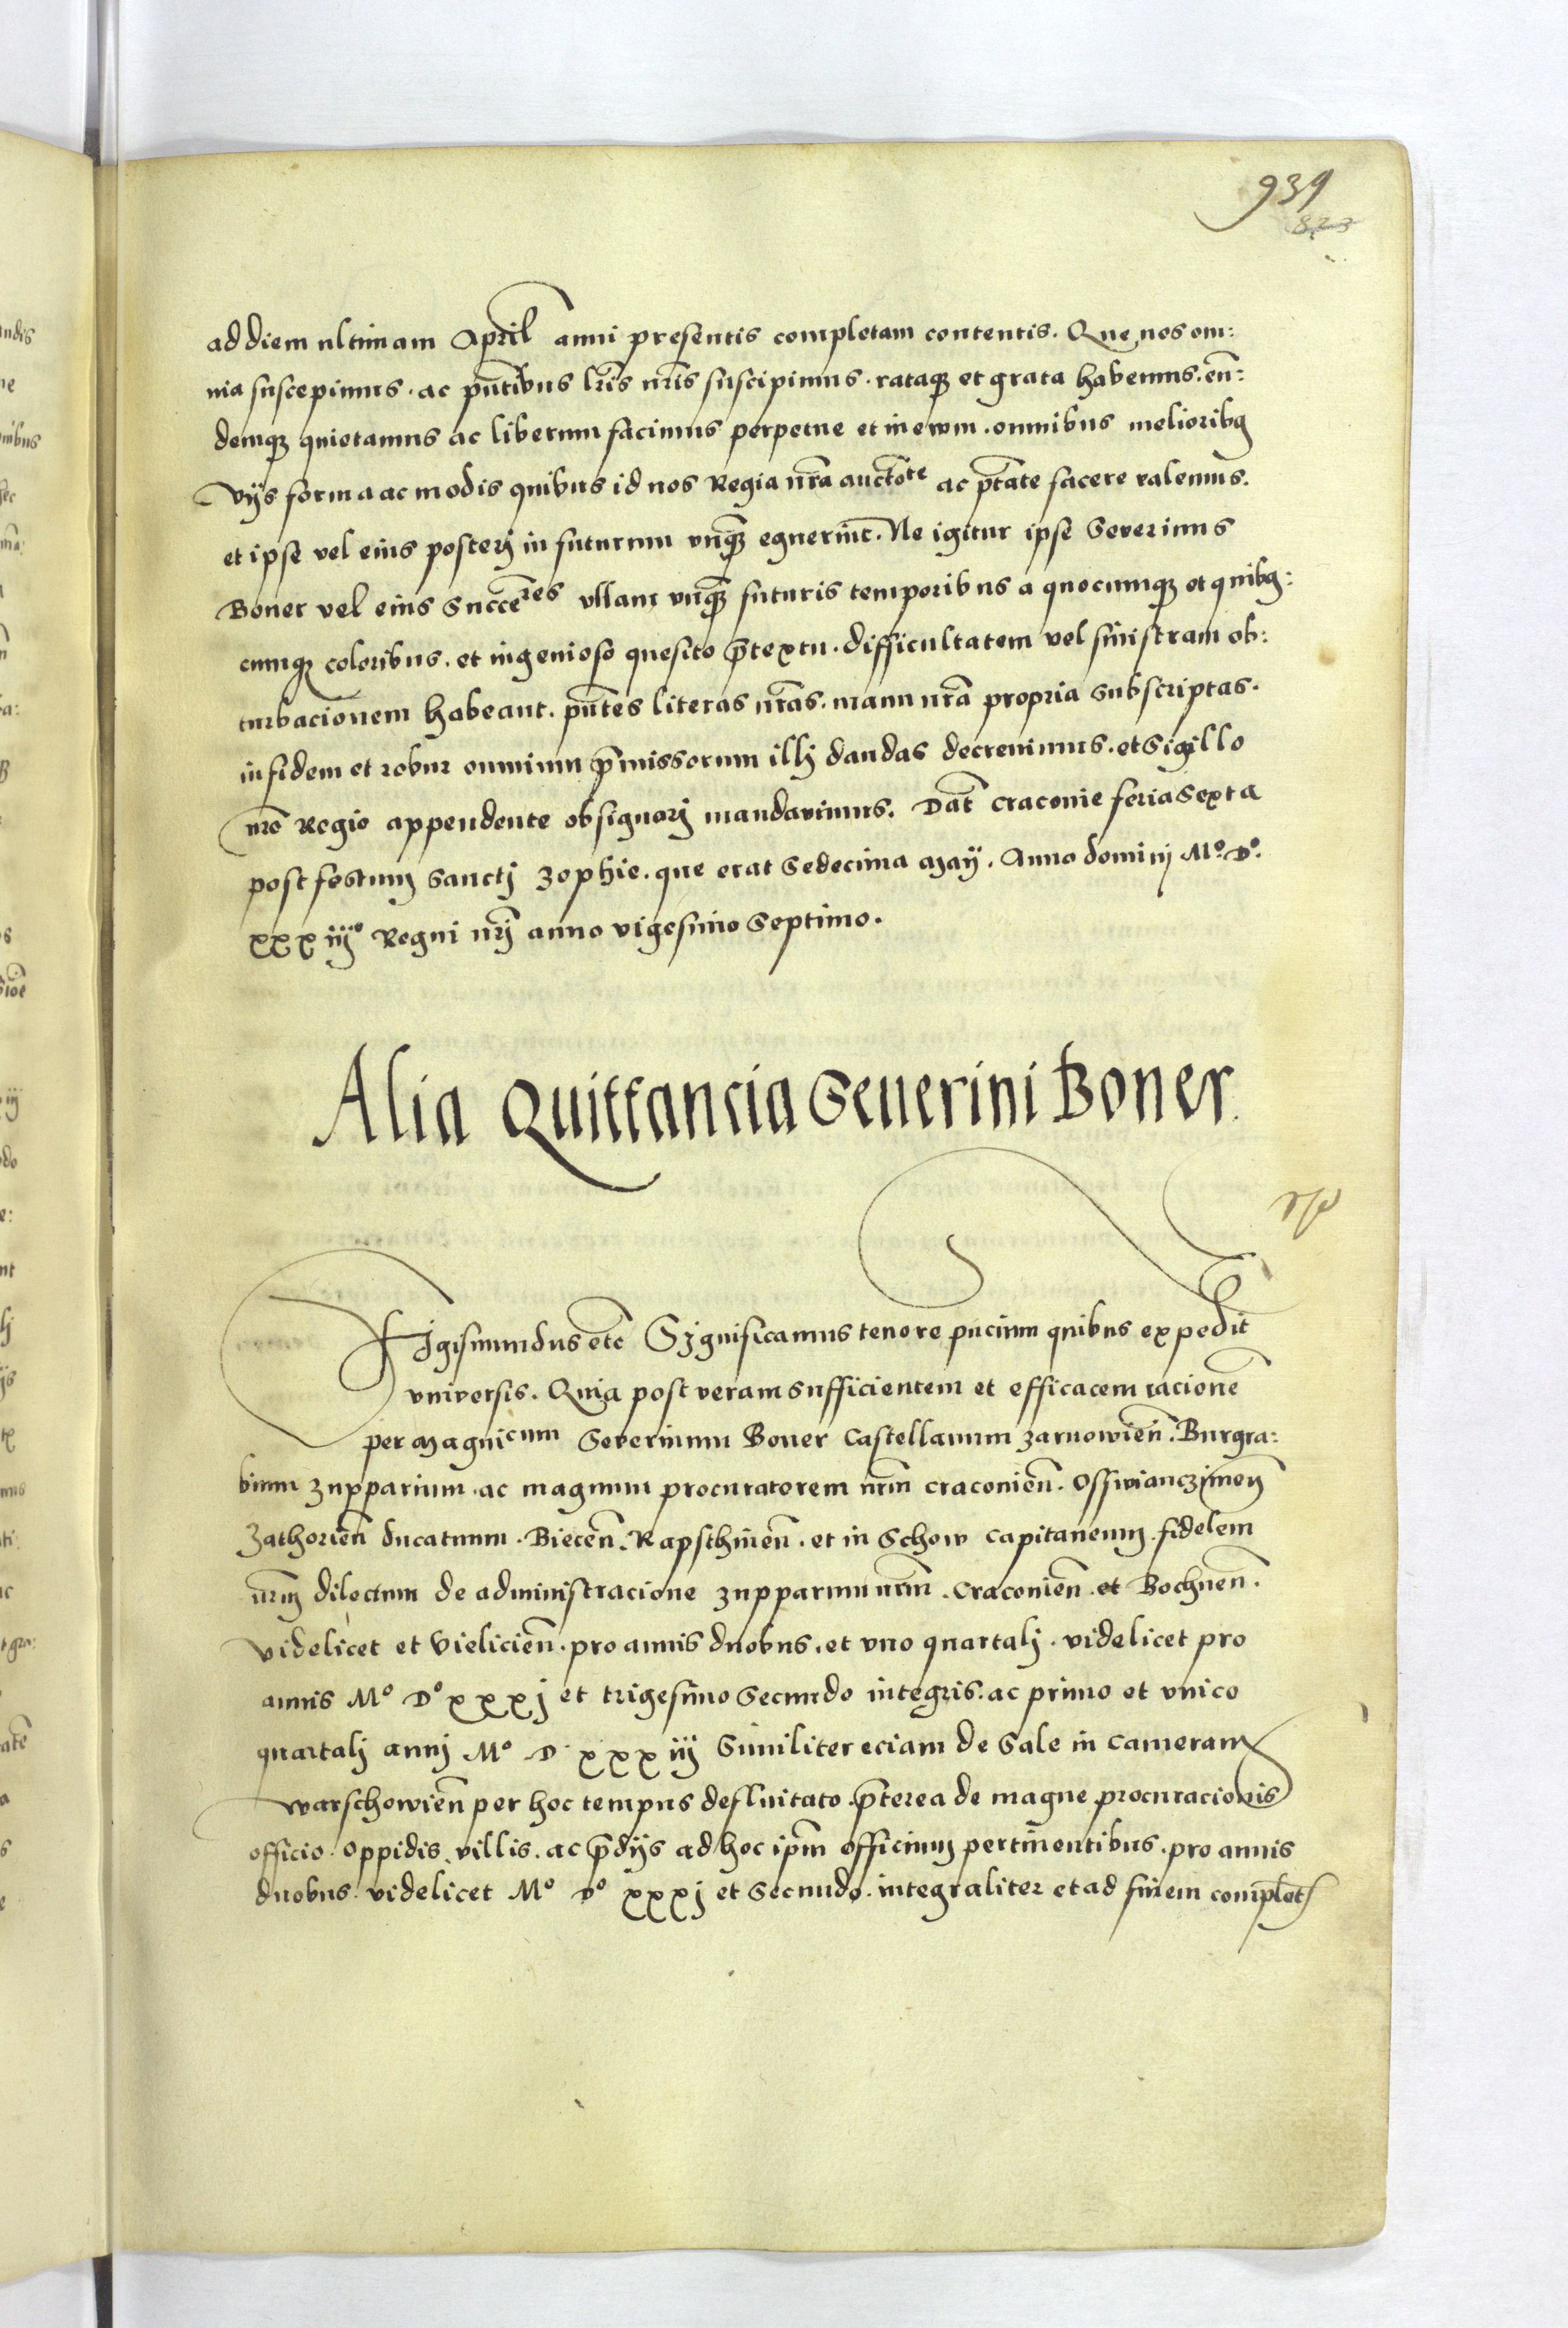 939
823
ad diem ultimam April anni presentis completam contentis. Que nos om:
nia suscepimus. ac pn̄tibus lr̄is nr̄is suscipimus. rataqz et grata habemus. eun̄:
demqz quietamus ac liberum facimus perpetue et in ewm. omnibus melioribq
vijs forma ac modis quibus id nos Regia nr̄a auctōte ac pt̄ate facere valemus.
et ipse vel eius posterj in futurum vnqz̄ eguerint. Ne igitur ipse Severinus
Boner vel eius Succēres vllam vnqz̄ futuris temporibus a quocumqz et quibq:
cumqz coloribus. et ingenioso quesito p̄textu. difficultatem vel sinistram ob:
turbacionem habeant. pn̄tes literas nr̄as. manu nr̄a propria subscriptas.
in fidem et robur omnium p̄missorum illj dandas decrevimus. et Sigillo
nr̄o Regio appendente obsignarj mandavimus. Dat̄ Craconie feria Sexta
post festum Sanctj Zophie. que erat Sedecima Maÿ. Anno dominj Mo. Do.
xxxiijo Regni nr̄j anno vigesimo Septimo.
Alia Quittancia Seuerini Boner.
Sigismundus etc̄ Significamus tenore pn̄cium quibus expedit
vniversis. Quia post veram sufficientem et efficacem racionē
per Magnicum Severinum Boner Castellanum Zarnowien̄. Burgra:
bium Zupparium. ac magnum procuratorem nr̄m Craconien̄. Osswianczimen̄
Zathorien̄ ducatuum. Biecen̄. Rapsthinen̄. et in Schow Capitaneum. fidelem
nr̄m dilectum de administracione zupparum nr̄m. Craconien̄. et Bochnen̄.
videlicet et Vielicien̄. pro annis duobus. et vno quartalj. videlicet pro
annis Mo Do xxxj et trigesimo Secundo integris. ac primo et vnico
quartalj annj Mo D xxxiij Similiter eciam de Sale in Cameram
warschowien̄ per hoc tempus defluitato. p̄terea de magne procuracionis
officio. oppidis. villis. ac p̄dijs ad hoc ip̄m officium pertinentibus. pro annis
duobus. videlicet Mo Do xxxj et Secundo. integraliter et ad finem complet̄